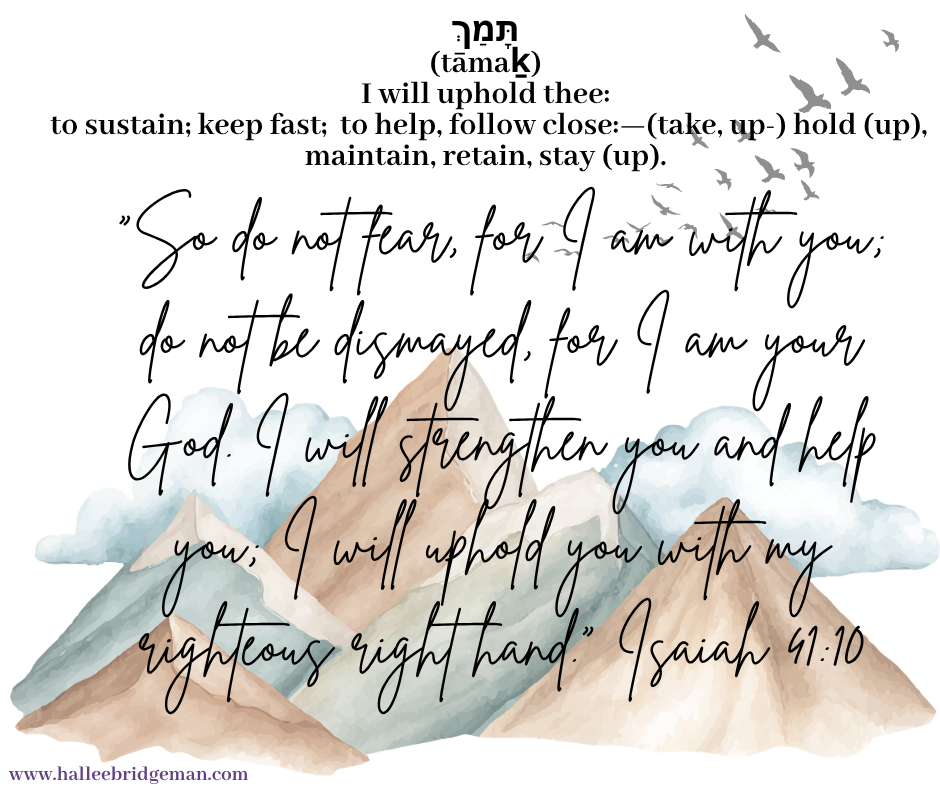 תָּמַךְ
(tāmaḵ)
I will uphold thee:
to sustain; keep fast;  to help, follow close:—(take, up-) hold (up),
maintain, retain, stay (up).
"So do not fear, for I am with you;
do not be dismayed, for I am your
God. I will strengthen you and help
you; I will uphold you with my
righteous right hand." Isaiah 41:10
www.halleebridgeman.com